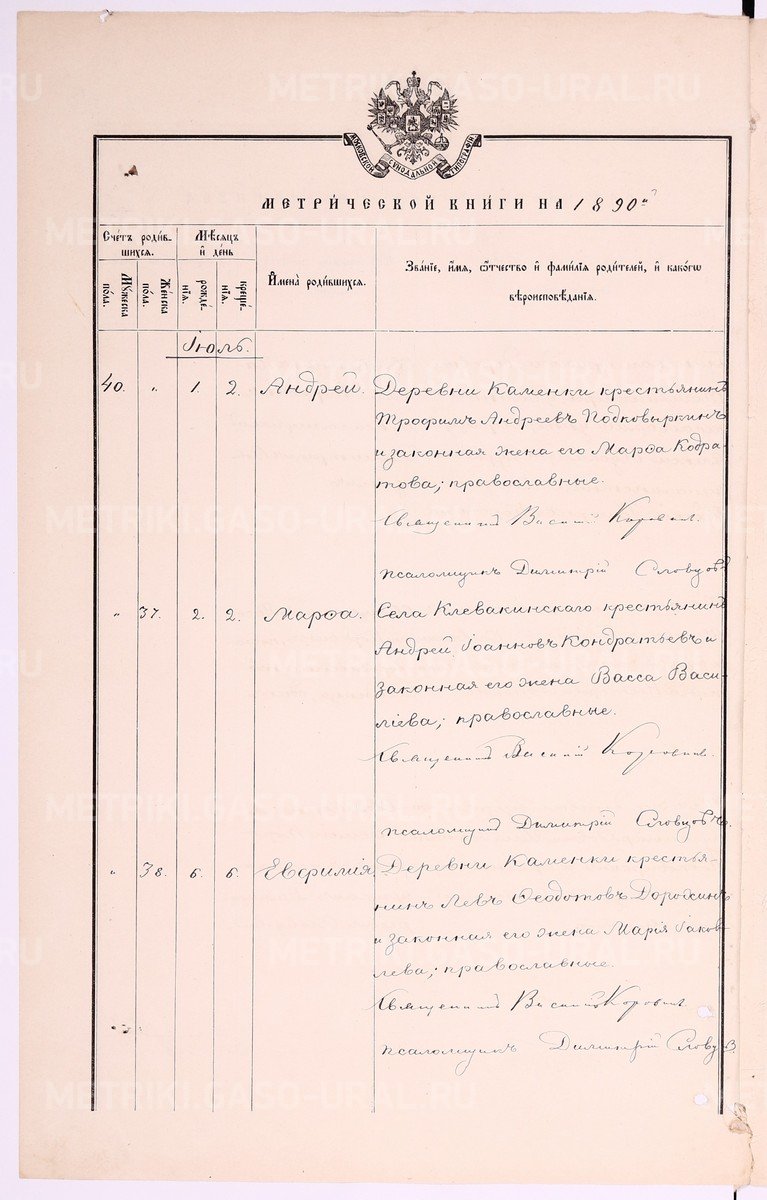 МОСКОВСКОЙ СѴНОДАЛЬНОЙ ТИПОГРАФІИ
МЕТРИ́ЧЕСКОЙ КНИ́ГИ НА 1890 г.
Сче́тъ роди́в-
шихся.
Мѣ́сяцъ
и҆ де́нь
Мꙋ́жеска
по́ла.
Же́нска
по́ла.
рожде́-
нїѧ.
креще́-
нїѧ.
И҆мена̀ роди́вшихся.
Зва́нїе, и҆́мѧ, ѻ҆́тчество и҆ фами́лїѧ роди́телей, и҆ како́гѡ
вѣроисповѣ́данїѧ.
Іюль.
40. " 1. 2. Андрей. Деревни Каменки крестьянинъ
Трофимъ Андреевъ Подковыркинъ
и законная жена его Марѳа Кодра-
това; православные.
Священникъ Василій Коровинъ.
псаломщикъ Димитрій Словцовъ
" 37. 2. 2. Марѳа. Села Клевакинскаго крестьянинъ
Андрей Іоанновъ Кондратьевъ и
законная его жена Васса Васи-
ліева; православные.
Священникъ Василій Коровинъ.
псаломщикъ Димитрій Словцовъ.
" 38. 6. 6. Евфимія. Деревни Каменки крестья-
нинъ Левъ Ѳеодотовъ Дорохинъ
и законная его жена Марія Іаков-
лева; православные.
Священникъ Василій Коровинъ
псаломщикъ Димитрій Словцовъ.
METRIKI.GASO-URAL.RU